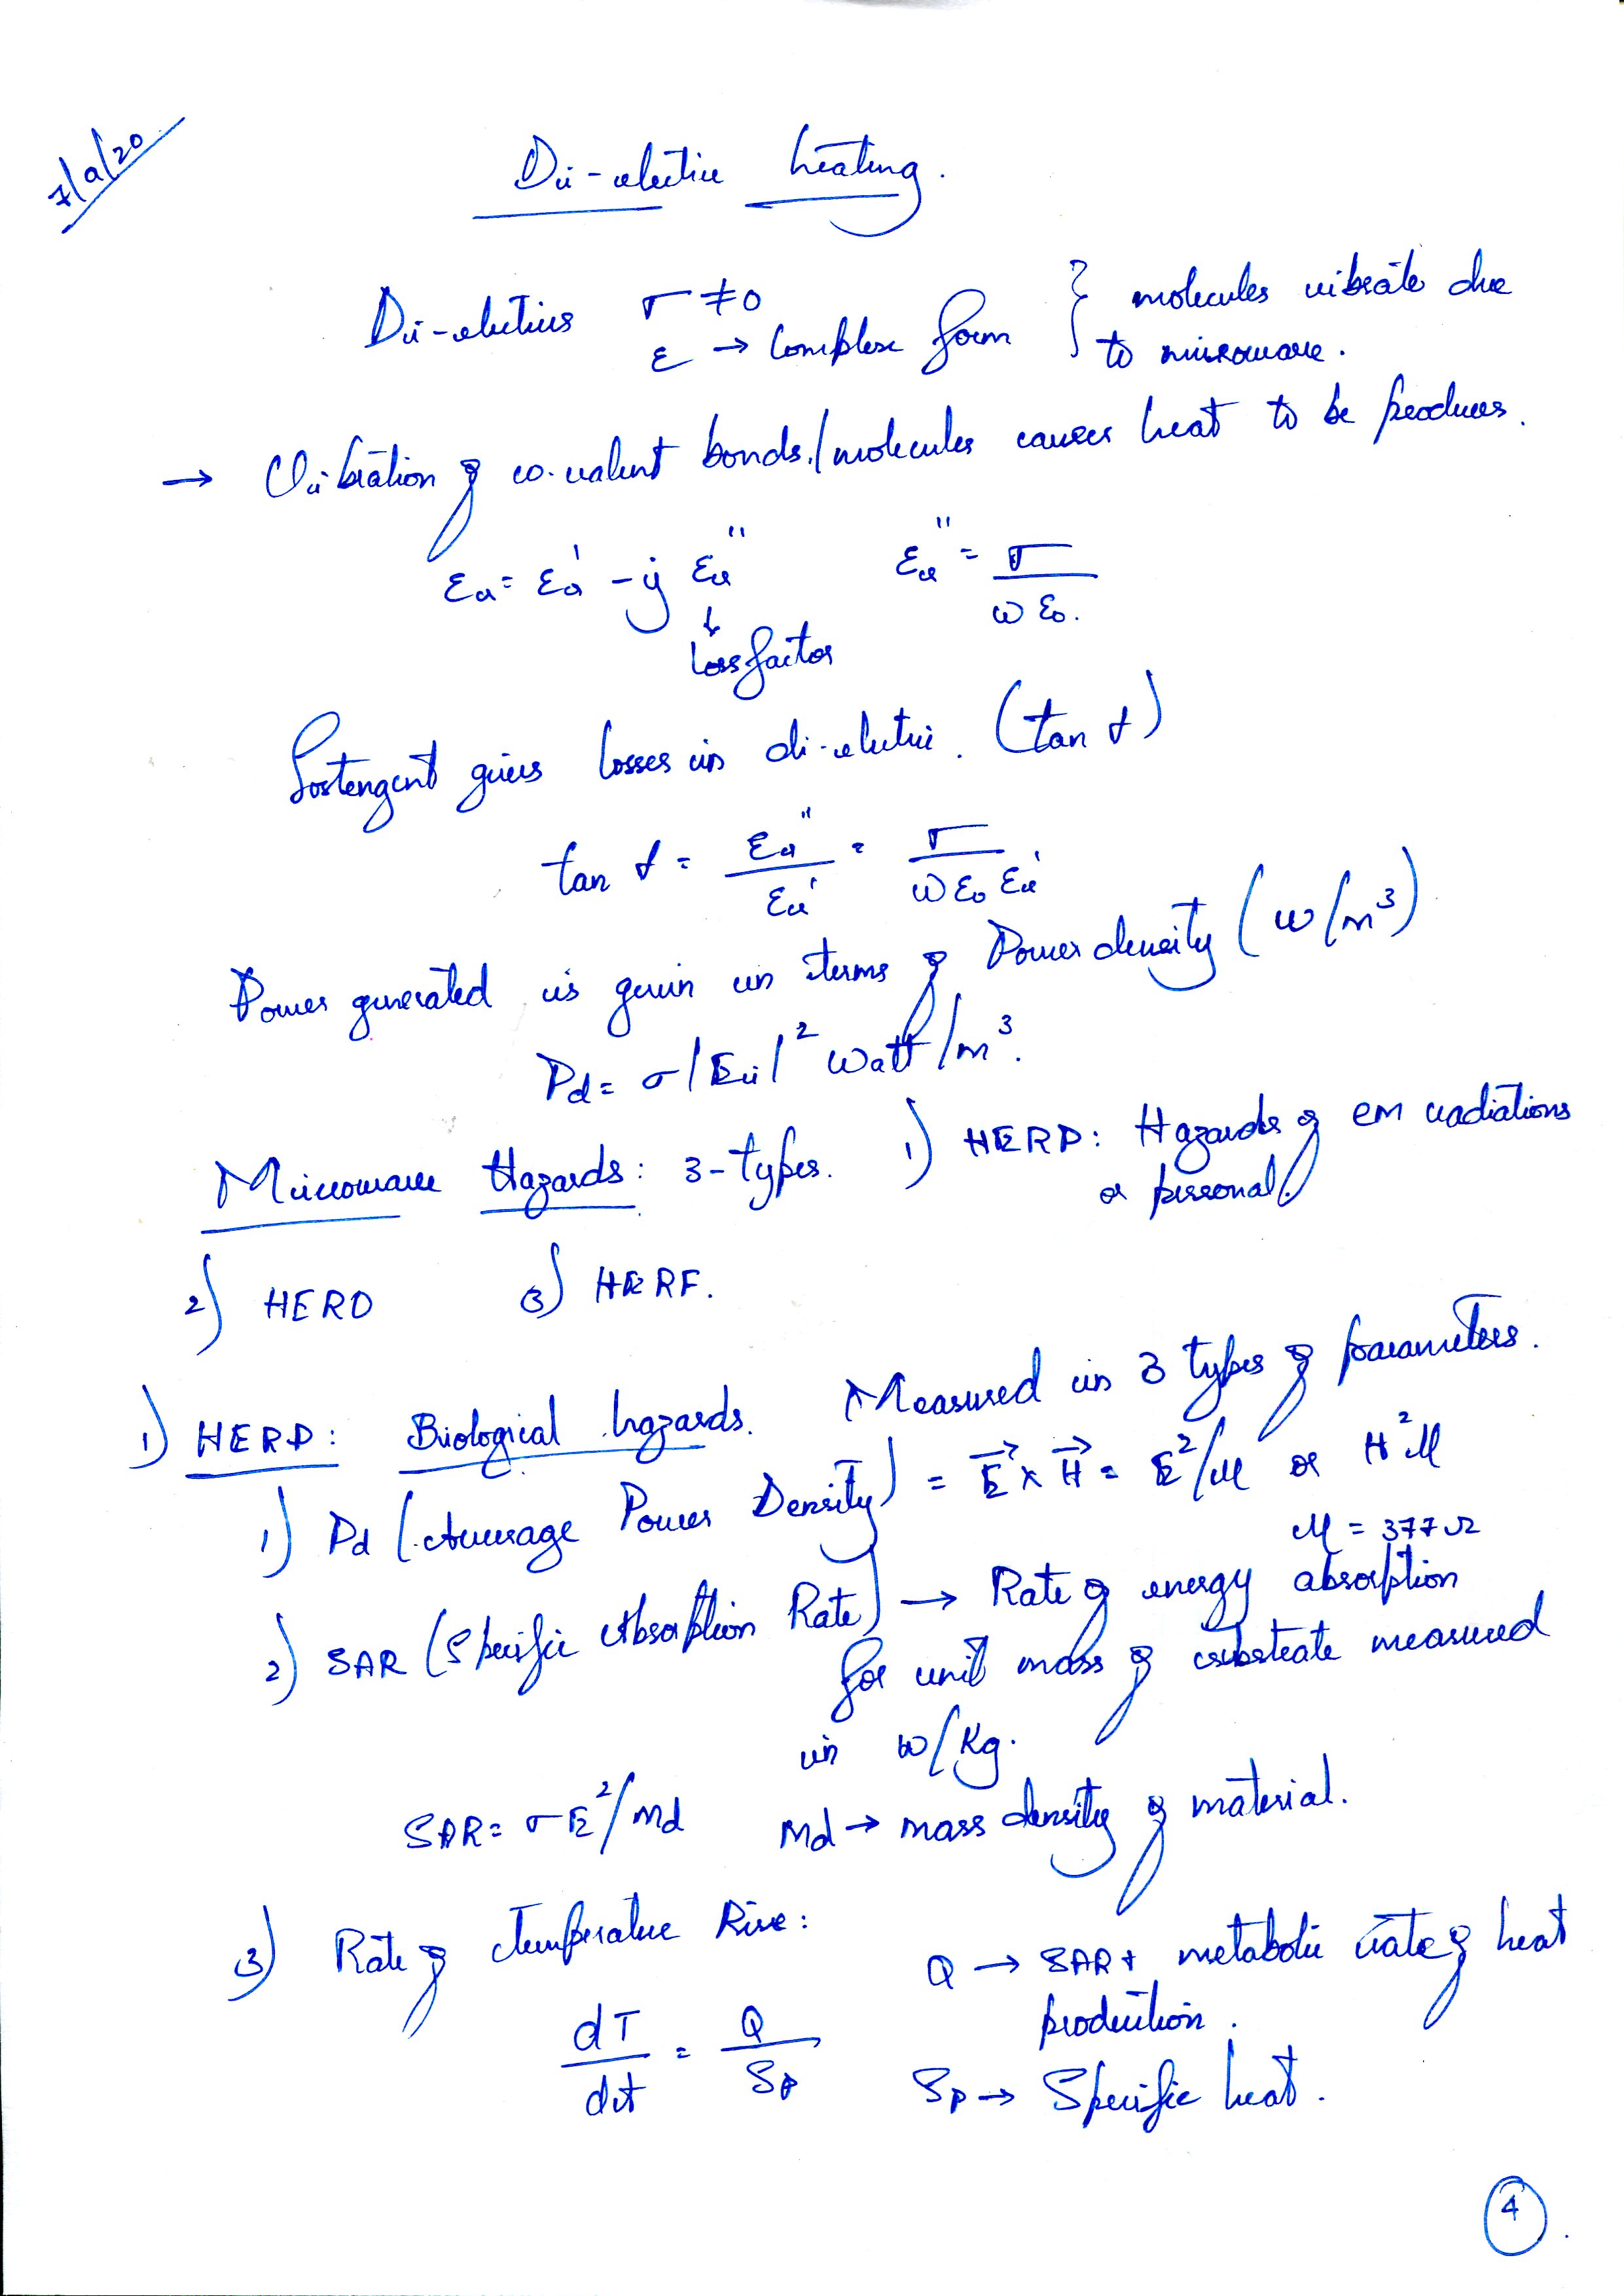 7/9/20
Di-electric heating.
Di-electrics σ ≠ 0 } molecules vibrate due
ε → Complex form to microwave.
→ Vibration of co-valent bonds/molecules causes heat to be produces.
εa = εa' - j εa'' εa'' = σ / ω ε0.
↓
Loss factor
Lostengent gives losses in di-electric. (tan δ)
tan δ = εa'' / εa' = σ / ω ε0 εa'
Power generated is given in terms of Power density (w/m³)
Pd = σ |Ei|² Watt/m³.
Microwave Hazards: 3-types. 1) HERP: Hazards of EM radiations
or personal.
2) HERO 3) HERF.
1) HERP: Biological hazards. Measured in 3 types of parameters.
1) Pd (Average Power Density) = E⃗ x H⃗ = E²/η or H²η
η = 377Ω
2) SAR (Specific Absorption Rate) → Rate of energy absorption
for unit mass of substrate measured
in W/Kg.
SAR = σE²/Md Md → mass density of material.
3) Rate of Temperature Rise: Q → SAR + metabolic rate of heat
production.
dT / dt = Q / Sp Sp → Specific heat.
4